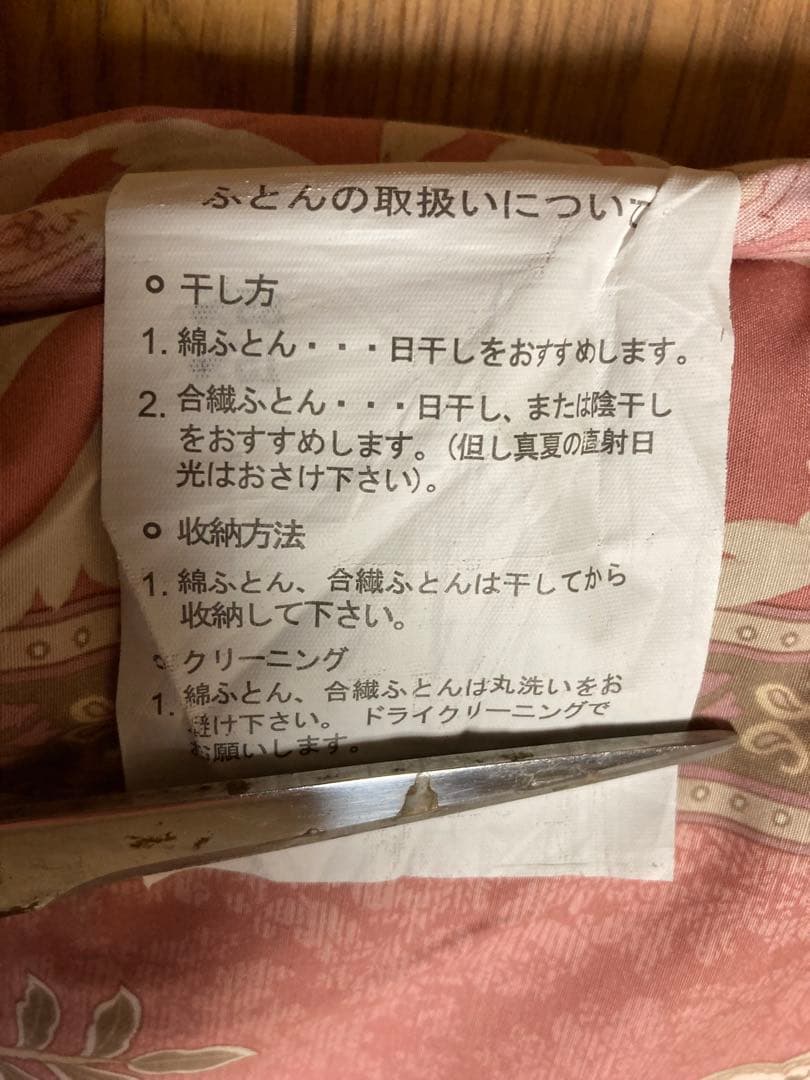 ふとんの取扱いについて
° 干し方
1. 綿ふとん・・・日干しをおすすめします。
2. 合繊ふとん・・・日干し、または陰干し
をおすすめします。(但し真夏の直射日
光はおさけ下さい)。
° 収納方法
1. 綿ふとん、合繊ふとんは干してから
収納して下さい。
° クリーニング
1. 綿ふとん、合繊ふとんは丸洗いをお
避け下さい。 ドライクリーニングで
お願いします。